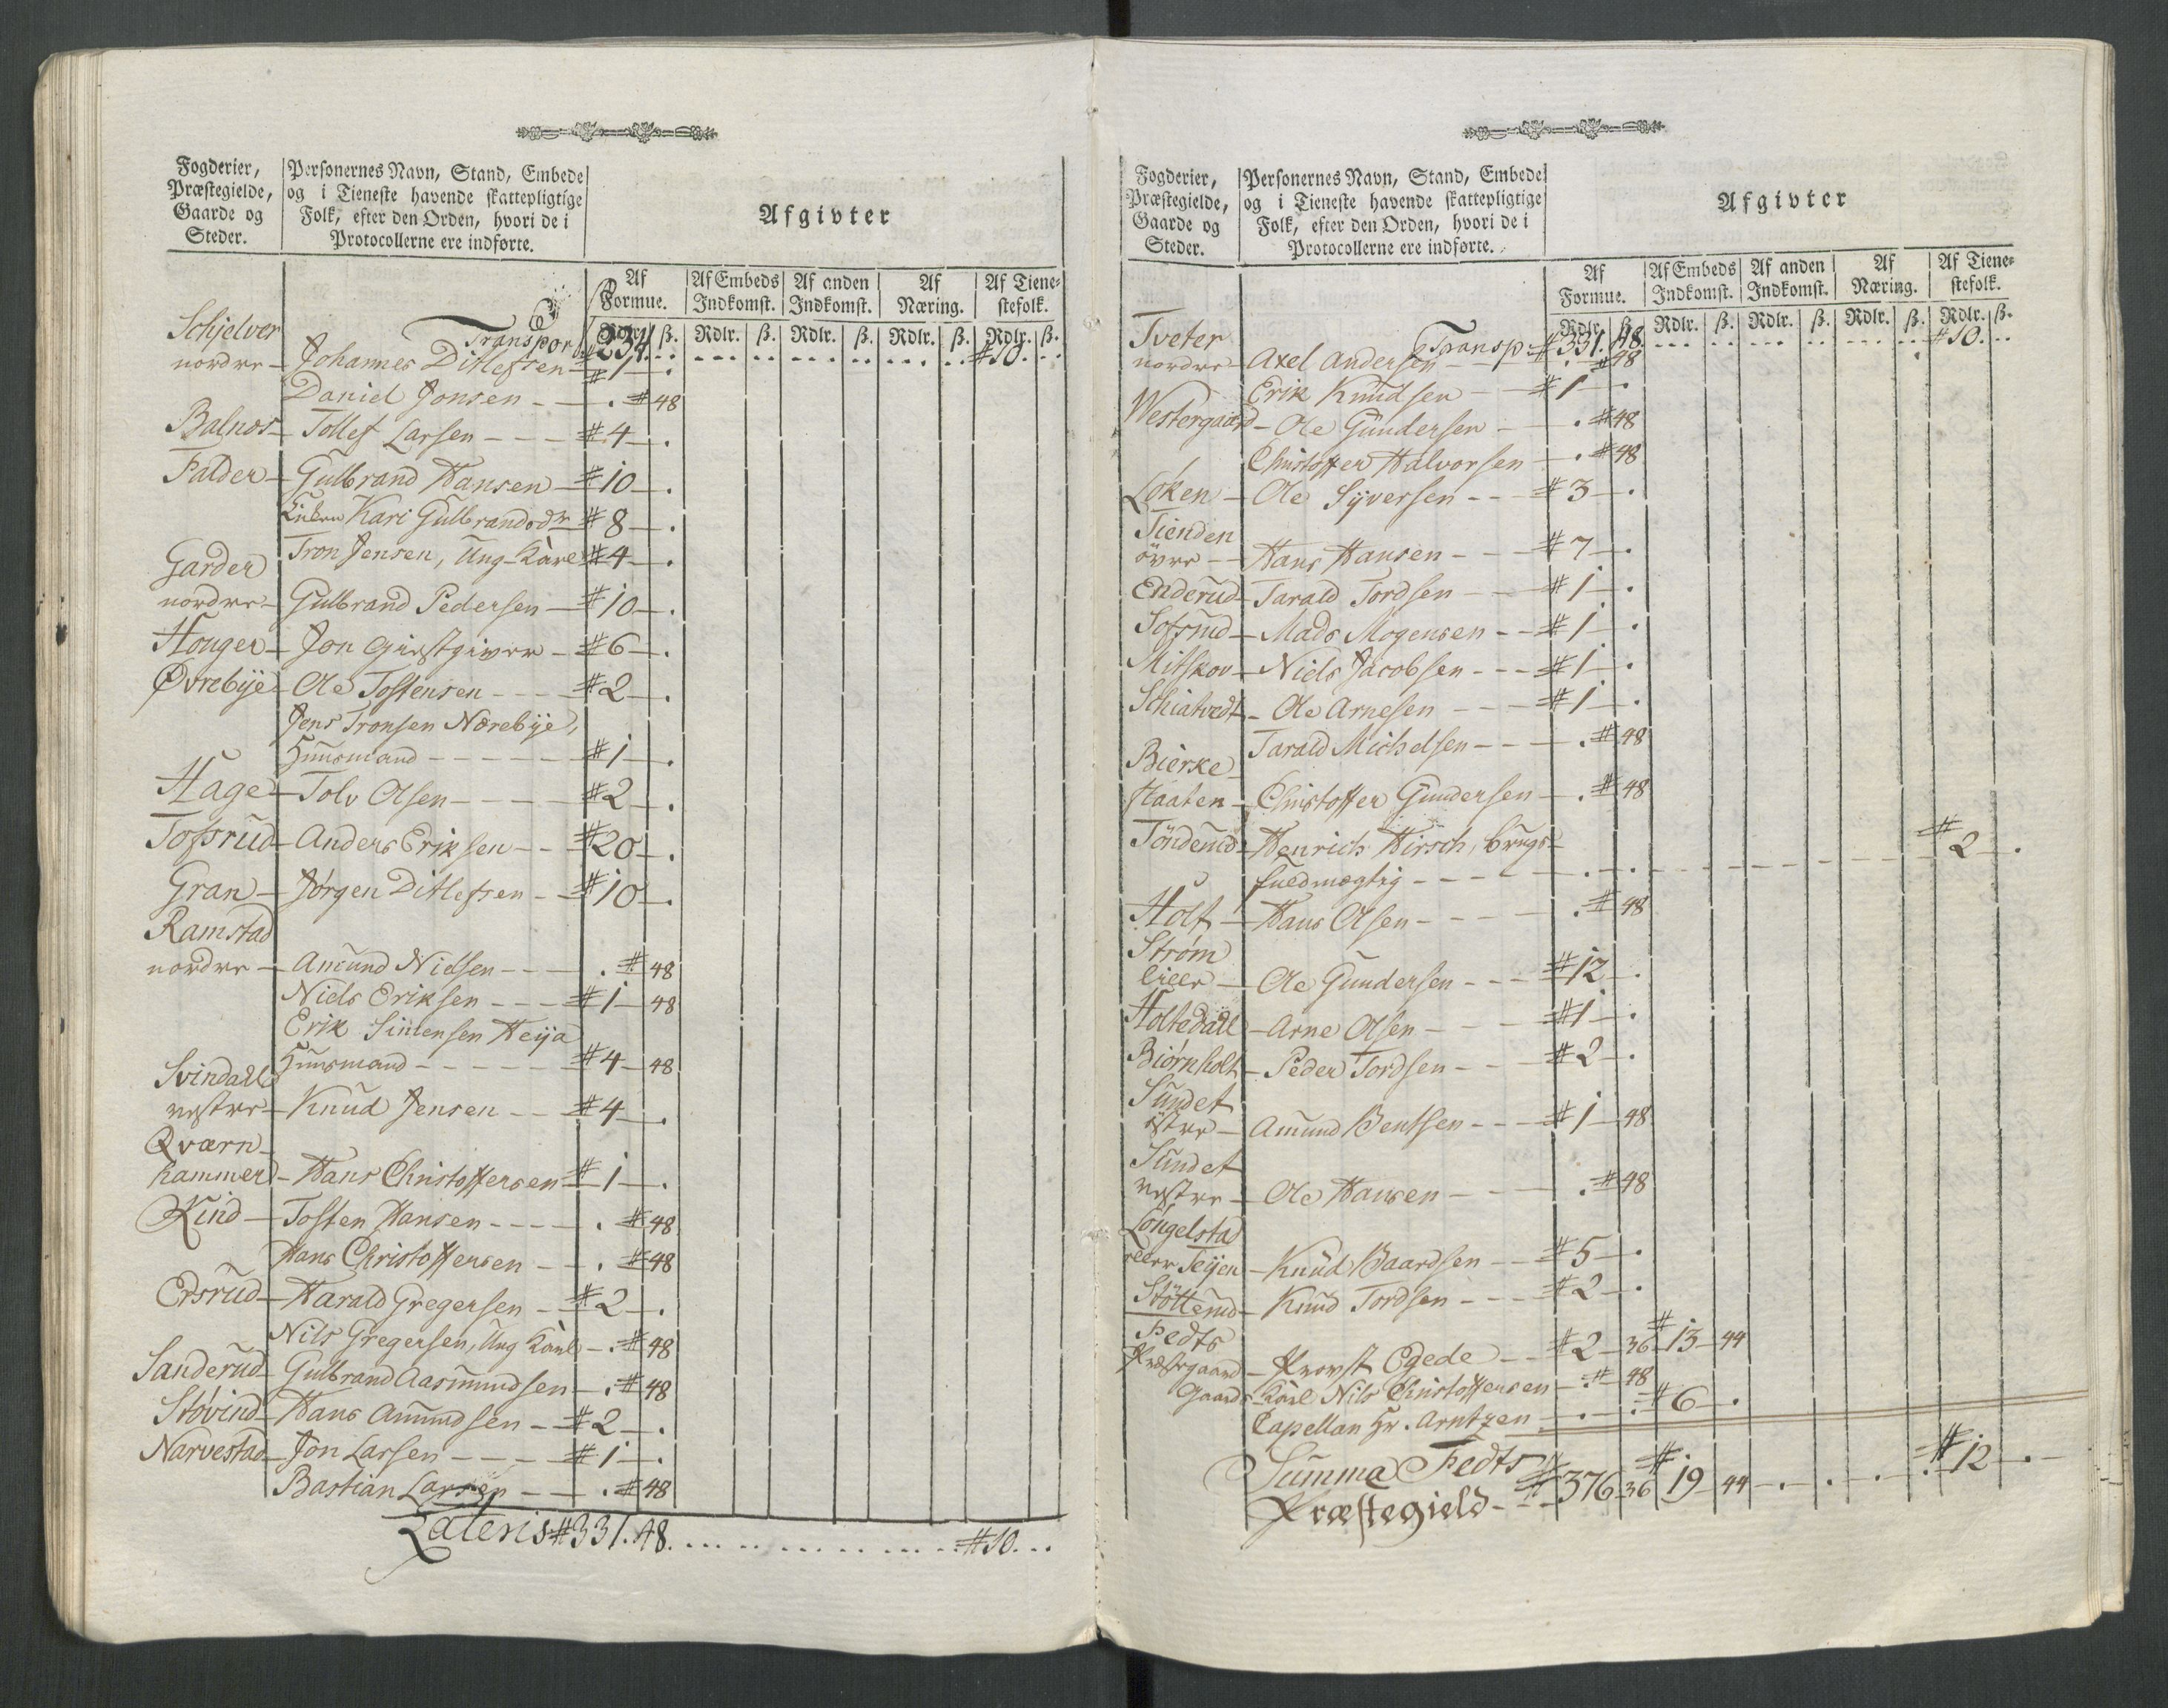 Fogderier, Præstegielde, Gaarde og Steder.
Personernes Navn, Stand, Embede og i Tieneste havende skattepligtige Folk, efter den Orden, hvori de i Protocollerne ere indførte.
Afgivter
Af Formue. Af Embeds Indkomst. Af anden Indkomst. Af Næring. Af Tienestefolk.
Rdlr. ß. Rdlr. ß. Rdlr. ß. Rdlr. ß. Rdlr. ß.
Transport #234. #10.
Schjelver
nordre - Johannes Ditlefsen #1 .
Daniel Jonsen . #48
Balnos - Tollef Larsen #4 .
Falder - Gulbrand Hansen #10 .
Enken Kari Gulbrandsdr #8 .
Tron Jensen, Ung-Karl #4 .
Garder
nordre - Gulbrand Pedersen #10 .
Houger - Jon Giestgiver #6 .
Øvrebÿe - Ole Tostensen #2 .
Jens Tronsen Nærebÿe,
Huusmand #1 .
Hage - Tolv Olsen #2 .
Tofsrud - Anders Eriksen #20 .
Gran - Jørgen Ditlefsen #10 .
Ramstad
nordre - Amund Nielsen . #48
Niels Eriksen #1 48
Erik Simensen Heÿa
Huusmand #4 48
Svindall
vestre - Knud Jensen #4 .
Qværn-
hammer - Hans Christoffersen #1 .
Kind - Tosten Hansen . #48
Hans Christoffersen . #48
Ersrud - Harald Gregersen #2 .
Nils Gregersen, Ung Karl . #48
Sanderud - Gulbrand Aasmundsen . #48
Støvind - Hans Amundsen #2 .
Narvestad - Jon Larsen #1 .
Bastian Larsen . #48
Lateris #331. 48. #10.
Fogderier, Præstegielde, Gaarde og Steder.
Personernes Navn, Stand, Embede og i Tieneste havende skattepligtige Folk, efter den Orden, hvori de i Protocollerne ere indførte.
Afgivter
Af Formue. Af Embeds Indkomst. Af anden Indkomst. Af Næring. Af Tienestefolk.
Rdlr. ß. Rdlr. ß. Rdlr. ß. Rdlr. ß. Rdlr. ß.
Transp: #331. 48. #10.
Tveter
nordre - Axel Andersen #48
Erik Knudsen #1 .
Westergaard - Ole Gundersen . #48
Christoffer Halvorsen . #48
Løken - Ole Sÿversen #3 .
Tienden
övre - Hans Hansen #7 .
Enderud - Tarald Tordsen #1 .
Sofsrud - Mads Mogensen #1 .
Mitskov - Niels Jacobsen #1 .
Schiatvedt - Ole Arnesen #1 .
Tarald Michelsen . #48
Bierke-
Haaten - Christoffer Gundersen . #48
Tönderud - Henrich Hirsch, brugs-
fuldmægtig #2 .
Holt - Hans Olsen . #48
Strøm
lille - Ole Gundersen #12 .
Holtedall - Arne Olsen #1 .
Biørnholt - Peder Tordsen #2 .
Sundet
östre - Amund Bentsen #1 48
Sundet
vestre - Ole Hansen . #48
Löngelstad
eller Teÿen - Knud Baardsen #5 .
Stötterud - Knud Tordsen #2 .
Fedts
Præstegaard - Provst Egede #2 36 #13 44
Gaards Karl Nils Christoffersen . #48
Capellan Hr. Arntzen #6 .
Summa Fedts
Præstegield #376 36 #19 44 #12 .